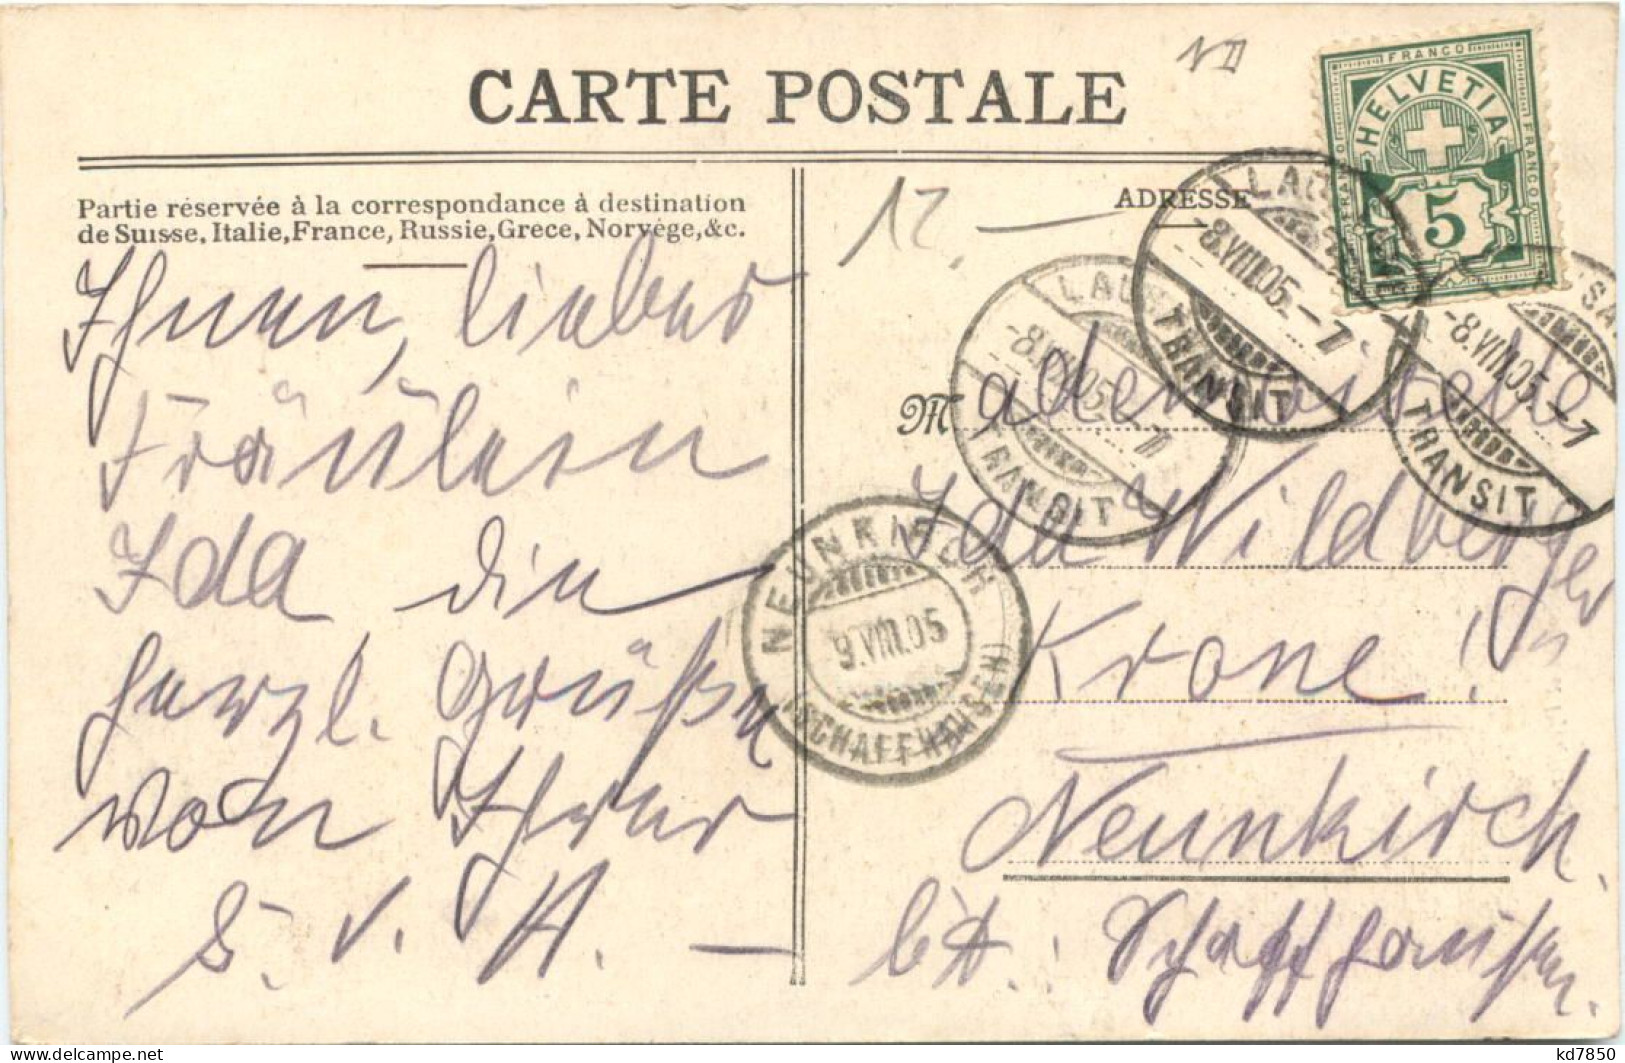 CARTE POSTALE
Partie réservée à la correspondance à destination
de Suisse, Italie, France, Russie, Grèce, Norvège, &c.
ADRESSE
12.
FRANCO
HELVETIA
FRANCO
5
LAUSANNE
-8.VIII.05.-7
TRANSIT
LAUSANNE
-8.VIII.05.-7
TRANSIT
LAUSANNE
-8.VIII.05.-7
TRANSIT
NEUNKIRCH
9.VIII.05
(SCHAFFHAUSEN)
Ihnen, liebes
Fräulein
Ida die
herzl. Grüße
von Ihrer
S. v. A. —
Mademoiselle
Ida Wildberger
Krone!
Neunkirch.
Kt. Schaffhausen.
kd7850